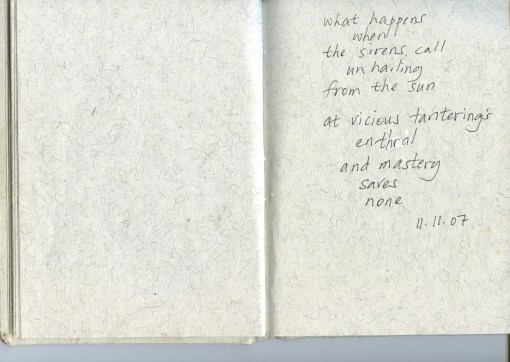 what happens
when
the sirens call
unhailing
from the sun
at vicious tantering's
enthral
and mastery
saves
none
11.11.07